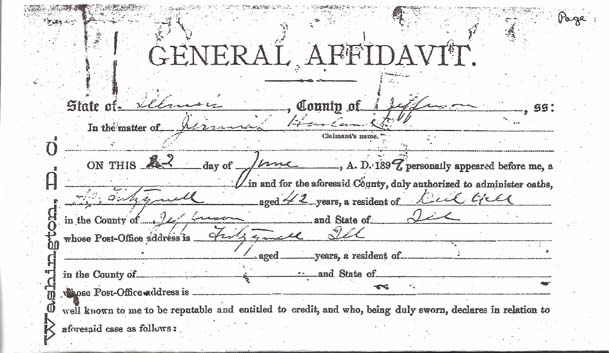 Page
GENERAL AFFIDAVIT.
State of Illinois, County of Jefferson, ss:
In the matter of
Claimant's name.
ON THIS 22 day of June, A. D. 1899, personally appeared before me, a
in and for the aforesaid County, duly authorized to administer oaths,
aged 42 years, a resident of
in the County of Jefferson and State of Ill
whose Post-Office address is Ill
aged years, a resident of
in the County of and State of
whose Post-Office address is
well known to me to be reputable and entitled to credit, and who, being duly sworn, declares in relation to
aforesaid case as follows:
Washington, D.